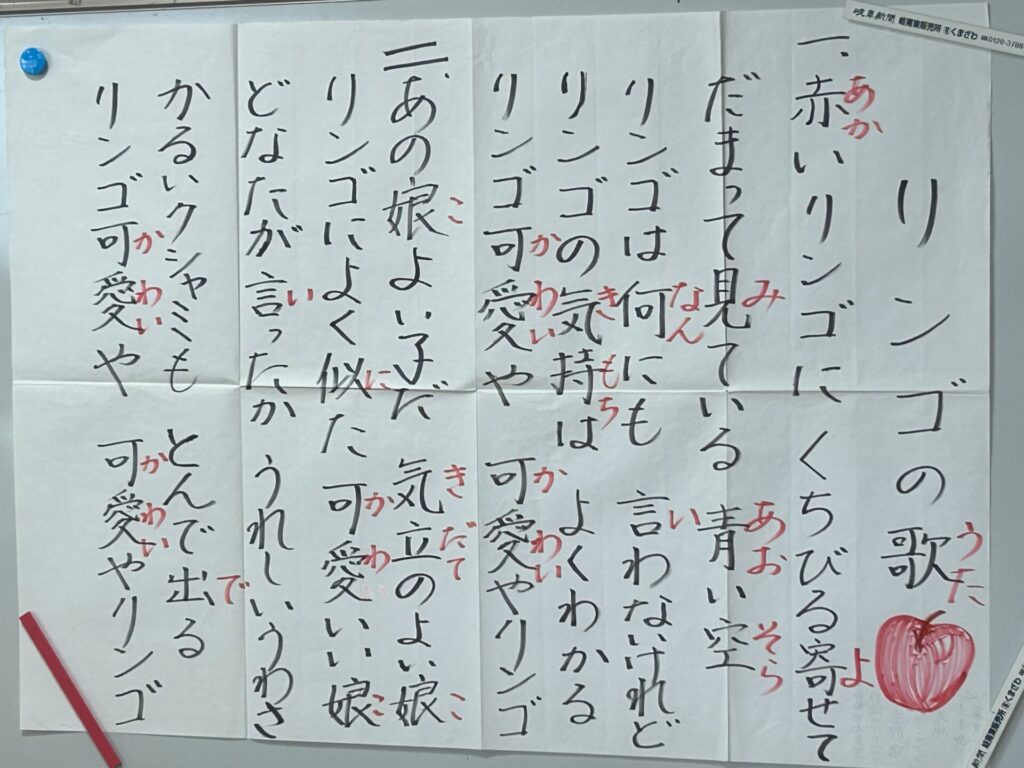 リンゴの歌
うた
一、赤いリンゴに くちびる寄せて
あか
よ
だまって見ている 青い空
み
あお
そら
リンゴは何にも 言わないけれど
なん
い
リンゴの気持は よくわかる
きもち
リンゴ可愛や 可愛やリンゴ
かわい
かわい
二、あの娘よい子だ 気立のよい娘
こ
きだて
こ
リンゴによく似た 可愛いい娘
に
かわ
こ
どなたが言ったか うれしいうわさ
い
かるいクシャミも とんで出る
で
リンゴ可愛や 可愛やリンゴ
かわい
かわい
岐阜新聞
くまざわ